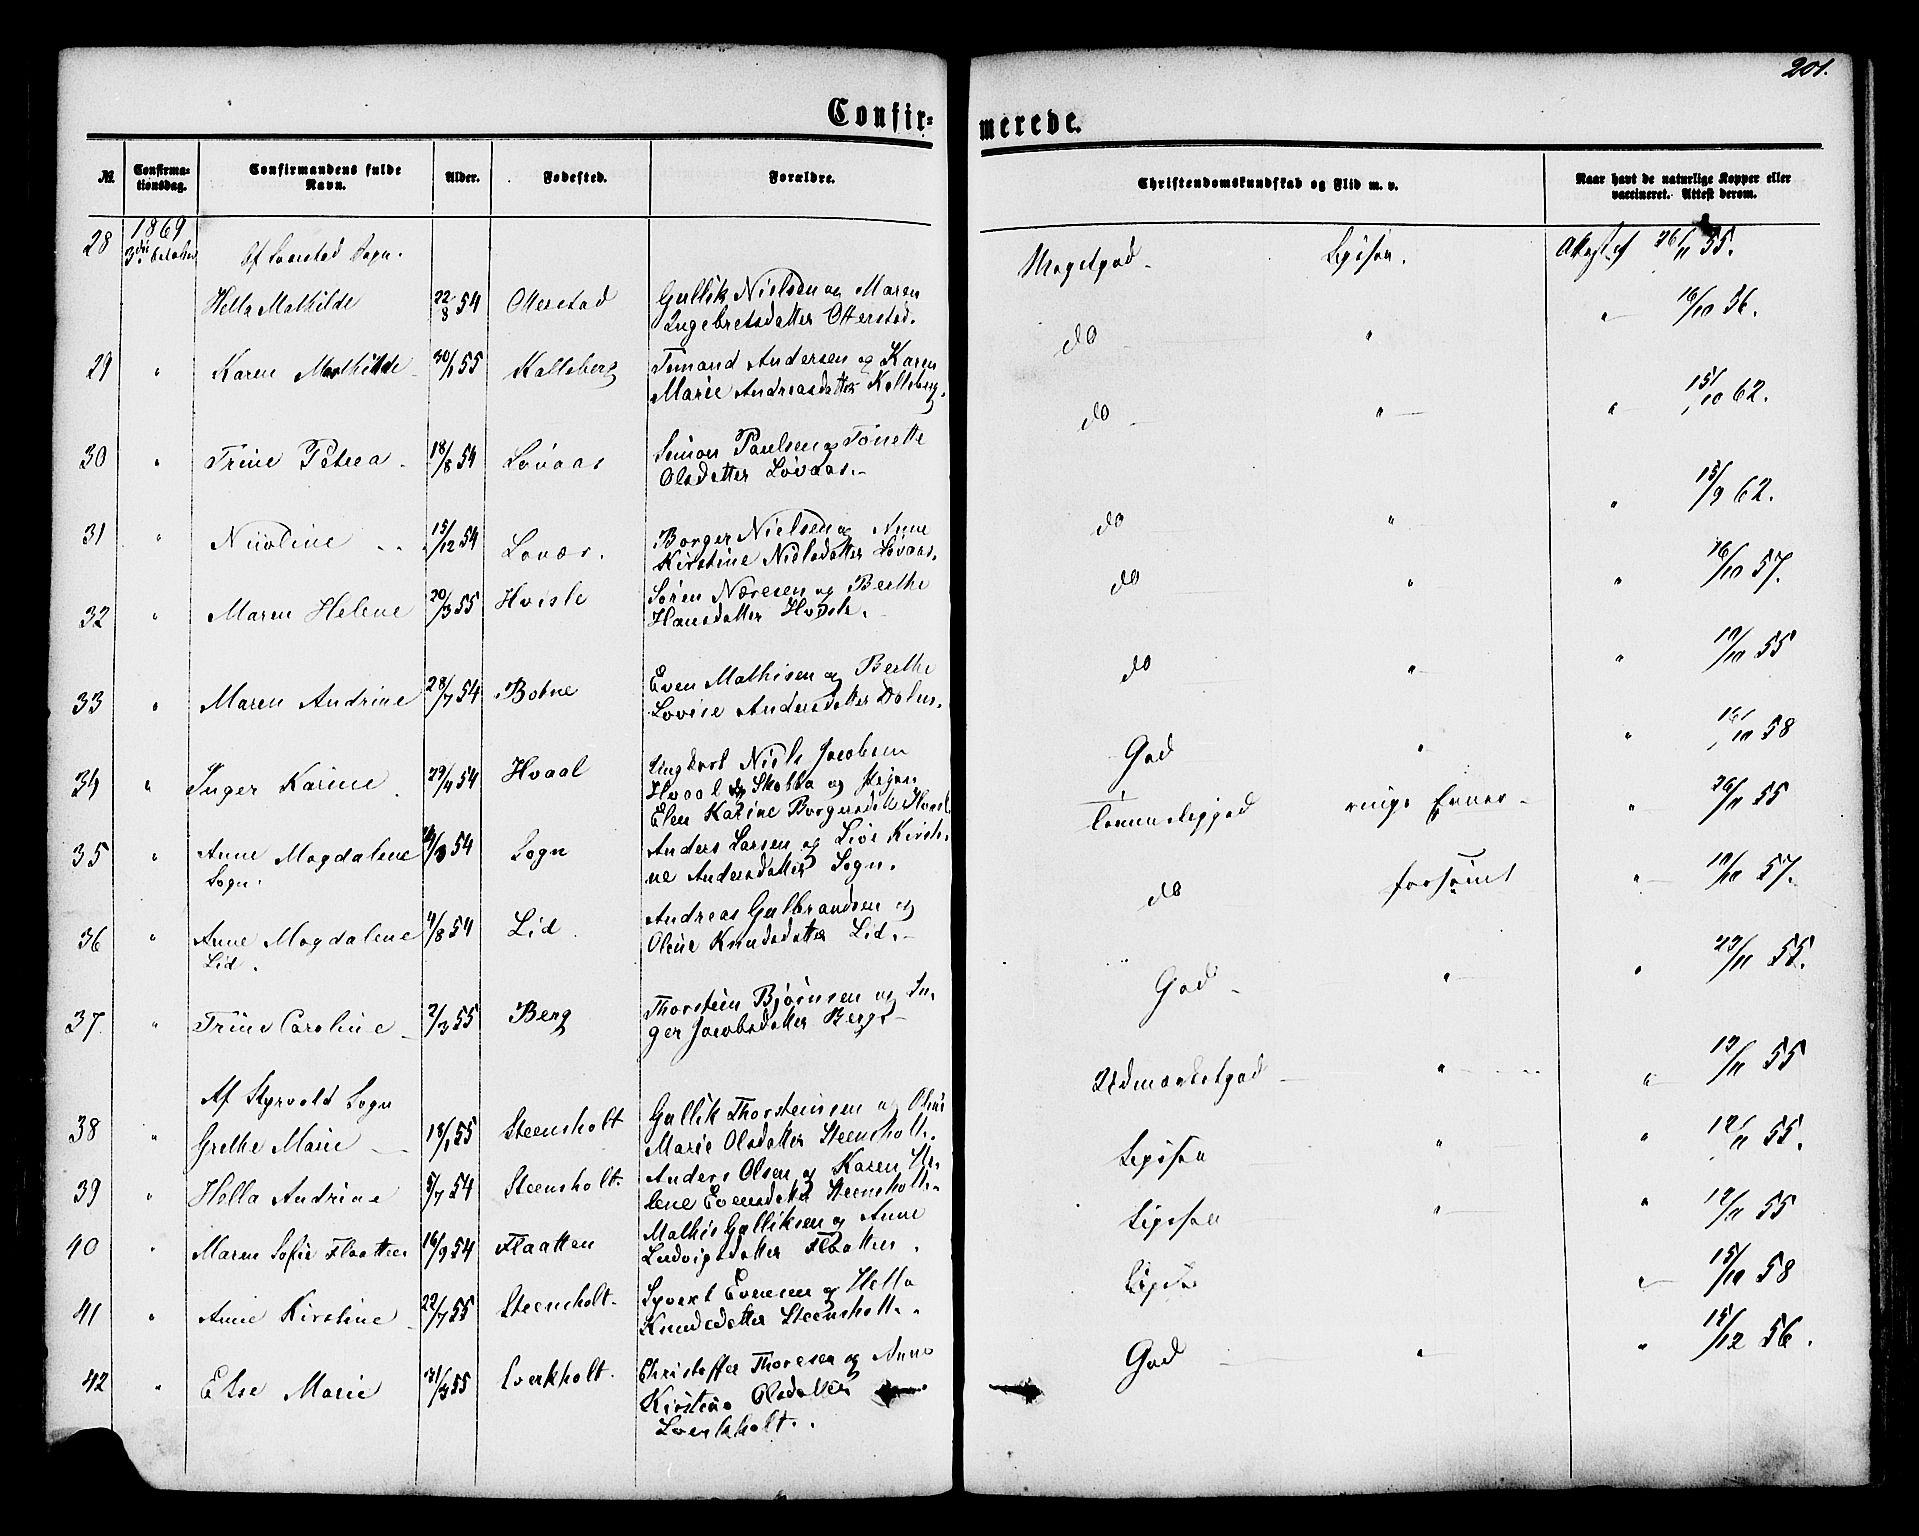 201.
Confir-
merede.
№ Confirma- Confirmandens fulde Alder. Fodested. Forældre. Christendomskundskab og Flid m. v. Naar havt de naturlige Kopper eller
tionsdag. Navn. vaccineret. Attest derom.
1869
28 3die Af Sogn. Meget god 26/11 55.
Hella Mathilde 22/8 54 Otterstad Gullik Nielsen og Maren
Ingebretsdatter Otterstad.
29 " Karen Mathilde 30/1 55 Kalleberg Temand Andersen og Karen do " " 16/10 56.
Marie Andreasdatter Kalleberg.
30 " Trine Petrea 18/8 54 Løvaas Simon Paulsen og Tonette do " " 15/10 62.
Olsdatter Løvaas.
31 " 15/12 54 Løvaas. Borger Nielsen og Anne do " " 15/9 62.
Kirstine Nielsdatter Løvaas.
32 " Maren Helene 20/3 55 Hvisle Søren og Berthe do " " 16/10 57.
Hansdatter Hvisle.
33 " Maren Andrine 28/7 54 Even Mathisen og Berthe do " " 19/10 55
Lovise Andersdatter
34 " Inger Karine 29/4 54 Hvaal Ungkarl Niels Jacobsen God " " 16/10 58
Hvaal og Pigen
Elen Karine Borgersdtr
35 " Anne Magdalene 54 Sogn Anders Larsen og Live Kirsti- " 26/11 55
Sogn. ne Andersdatter Sogn.
36 " Anne Magdalene 4/8 54 Lid Andreas Gulbrandsen og do forsømt " 19/10 57.
Lid. Olene Knudsdatter Lid.
37. " Trine Caroline 2/3 55 Berg Thorstein Bjørnsen og In- God " " 23/11 55.
ger Jacobsdatter Berg
Af Styrvold Sogn
38 " Grethe Marie 18/1 55 Steensholt Gullik Thorsteinsen og " " 19/11 55
Marie Olsdatter Steensholt.
39 " Hella Andrine 5/7 54 Steensholt. Anders Olsen og Karen He- " " 12/11 55.
lene Evensdatter Steensholt.
40 " Maren Sofie Flaatten 16/9 54 Flaatten Mathis Gulliksen og Anne " " 12/11 55
Ludvigsdatter Flaatten.
41 " Anne Kirstine 22/7 55 Steensholt. Syvert Evensen og Hella " 15/10 58
Knudsdatter Steensholt.
42 " Else Marie 31/3 55 Christoffer Thoresen og Anne God " " 15/12 56.
Kirstine Olsdatter